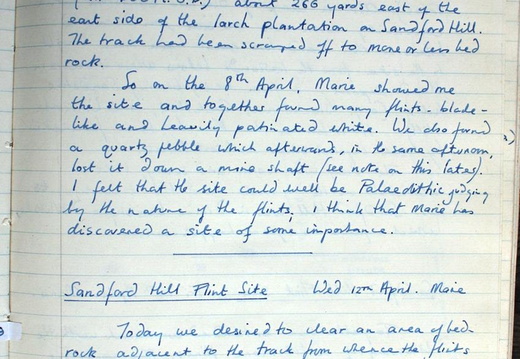 about 266 yards east of the
east side of the larch plantation on Sandford Hill.
The track had been scraped off to more or less bed
rock.
So on the 8th April, Marie showed me
the site and together found many flints - blade-
like and heavily patinated white. We also found
a quartz pebble which afterwards, in the same afternoon,
lost it down a mine shaft (see note on this later).
I felt that the site could well be Palaeolithic judging
by the nature of the flints, I think that Marie has
discovered a site of some importance.
Sandford Hill Flint Site Wed 12th April. Marie
Today we desired to clear an area of bed-
rock adjacent to the track from whence the flints